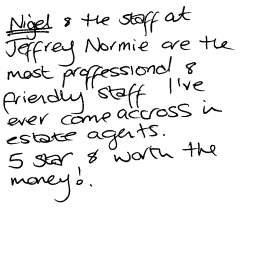 Nigel & the staff at
Jeffrey Normie are the
most proffessional &
friendly staff I've
ever come accross in
estate agents.
5 star & worth the
money!.